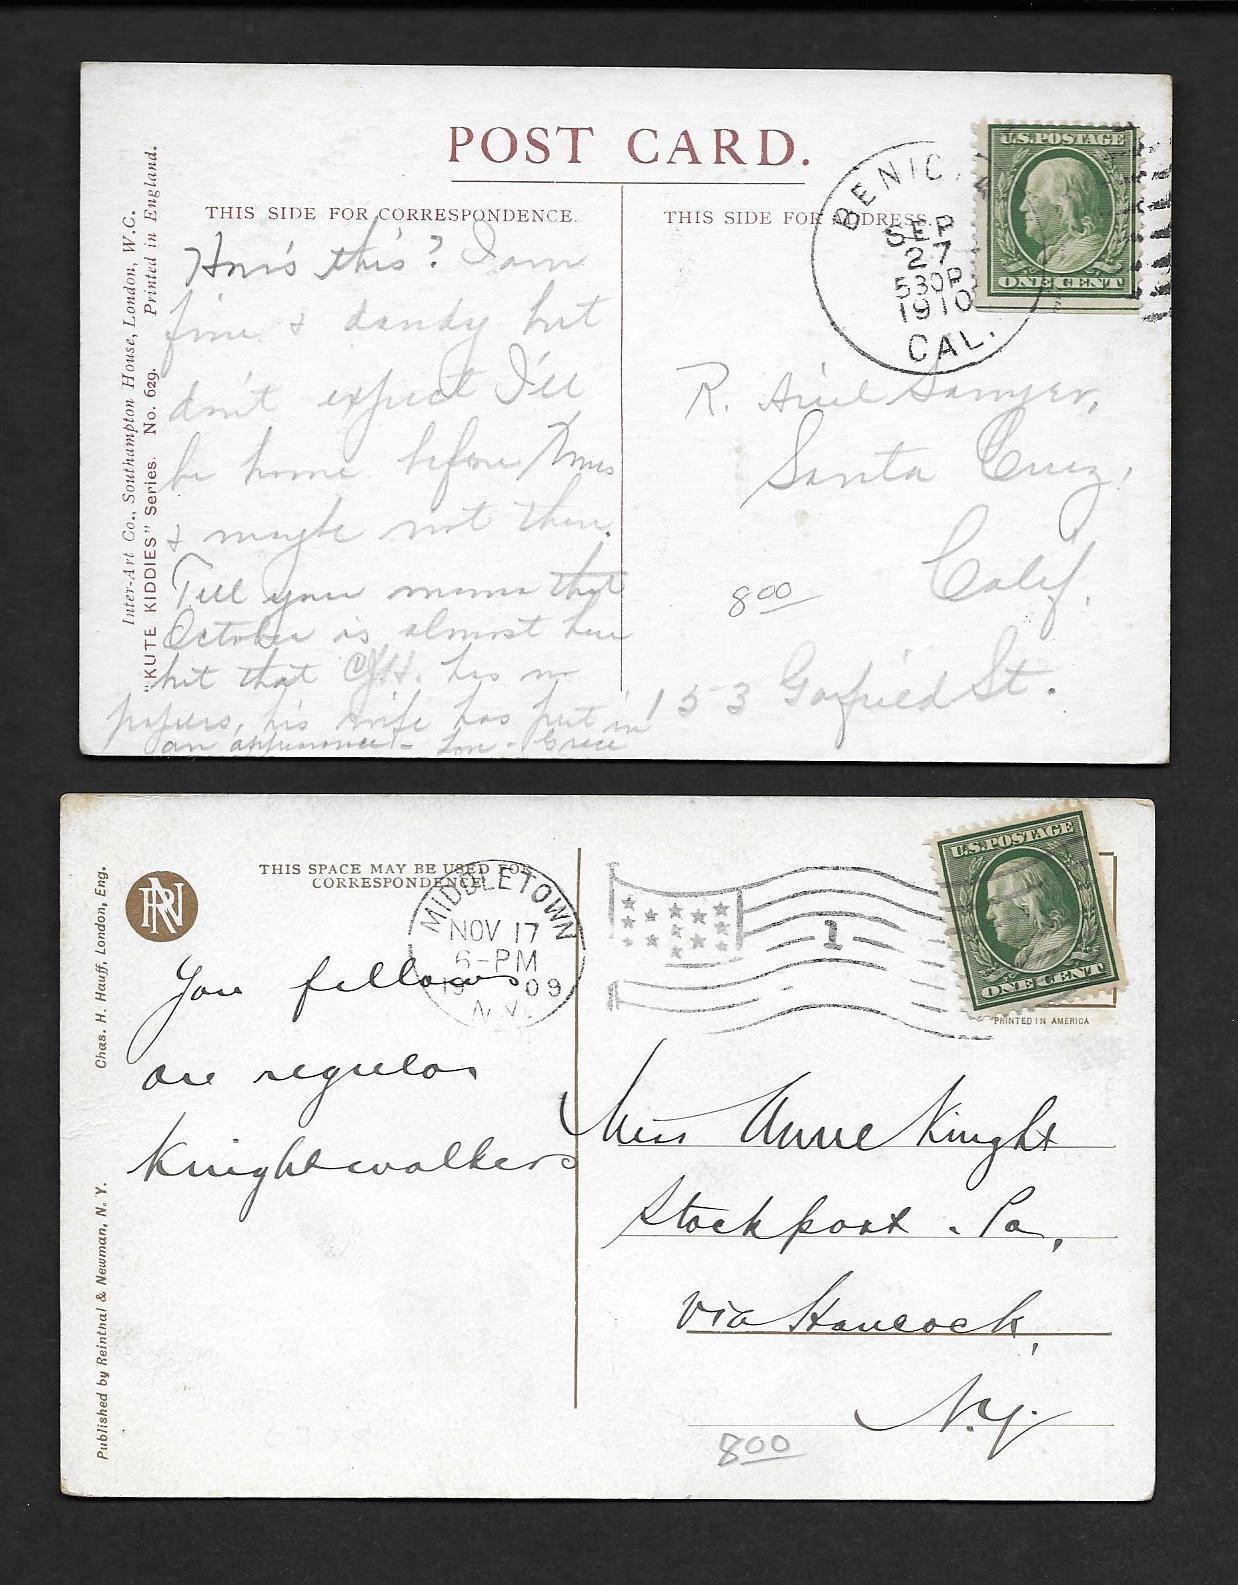 POST CARD.
THIS SIDE FOR CORRESPONDENCE.
THIS SIDE FOR ADDRESS.
Inter-Art Co., Southampton House, London, W.C.
"KUTE KIDDIES" Series. No. 629. Printed in England.
U.S. POSTAGE
ONE CENT
BENICIA
SEP
27
530P
1910
CAL.
How's this? I am
fine & dandy but
don't expect I'll
be home before Xmas
& maybe not then.
Tell your mama that
October is almost here
but that has no
papers, his wife has put in
an appearance - Love - Grace
R. Ariel Sawyer,
Santa Cruz,
Calif.
153 Garfield St.
800
RN
THIS SPACE MAY BE USED FOR
CORRESPONDENCE
Chas. H. Hauff, London, Eng.
Published by Reinthal & Newman, N. Y.
MIDDLETOWN
NOV 17
6-PM
1909
N.Y.
1
U.S. POSTAGE
ONE CENT
PRINTED IN AMERICA
You fellows
are regular
Knightwalkers
Miss Anne Knight
Stockport. Pa,
via Hancock,
N.Y.
800